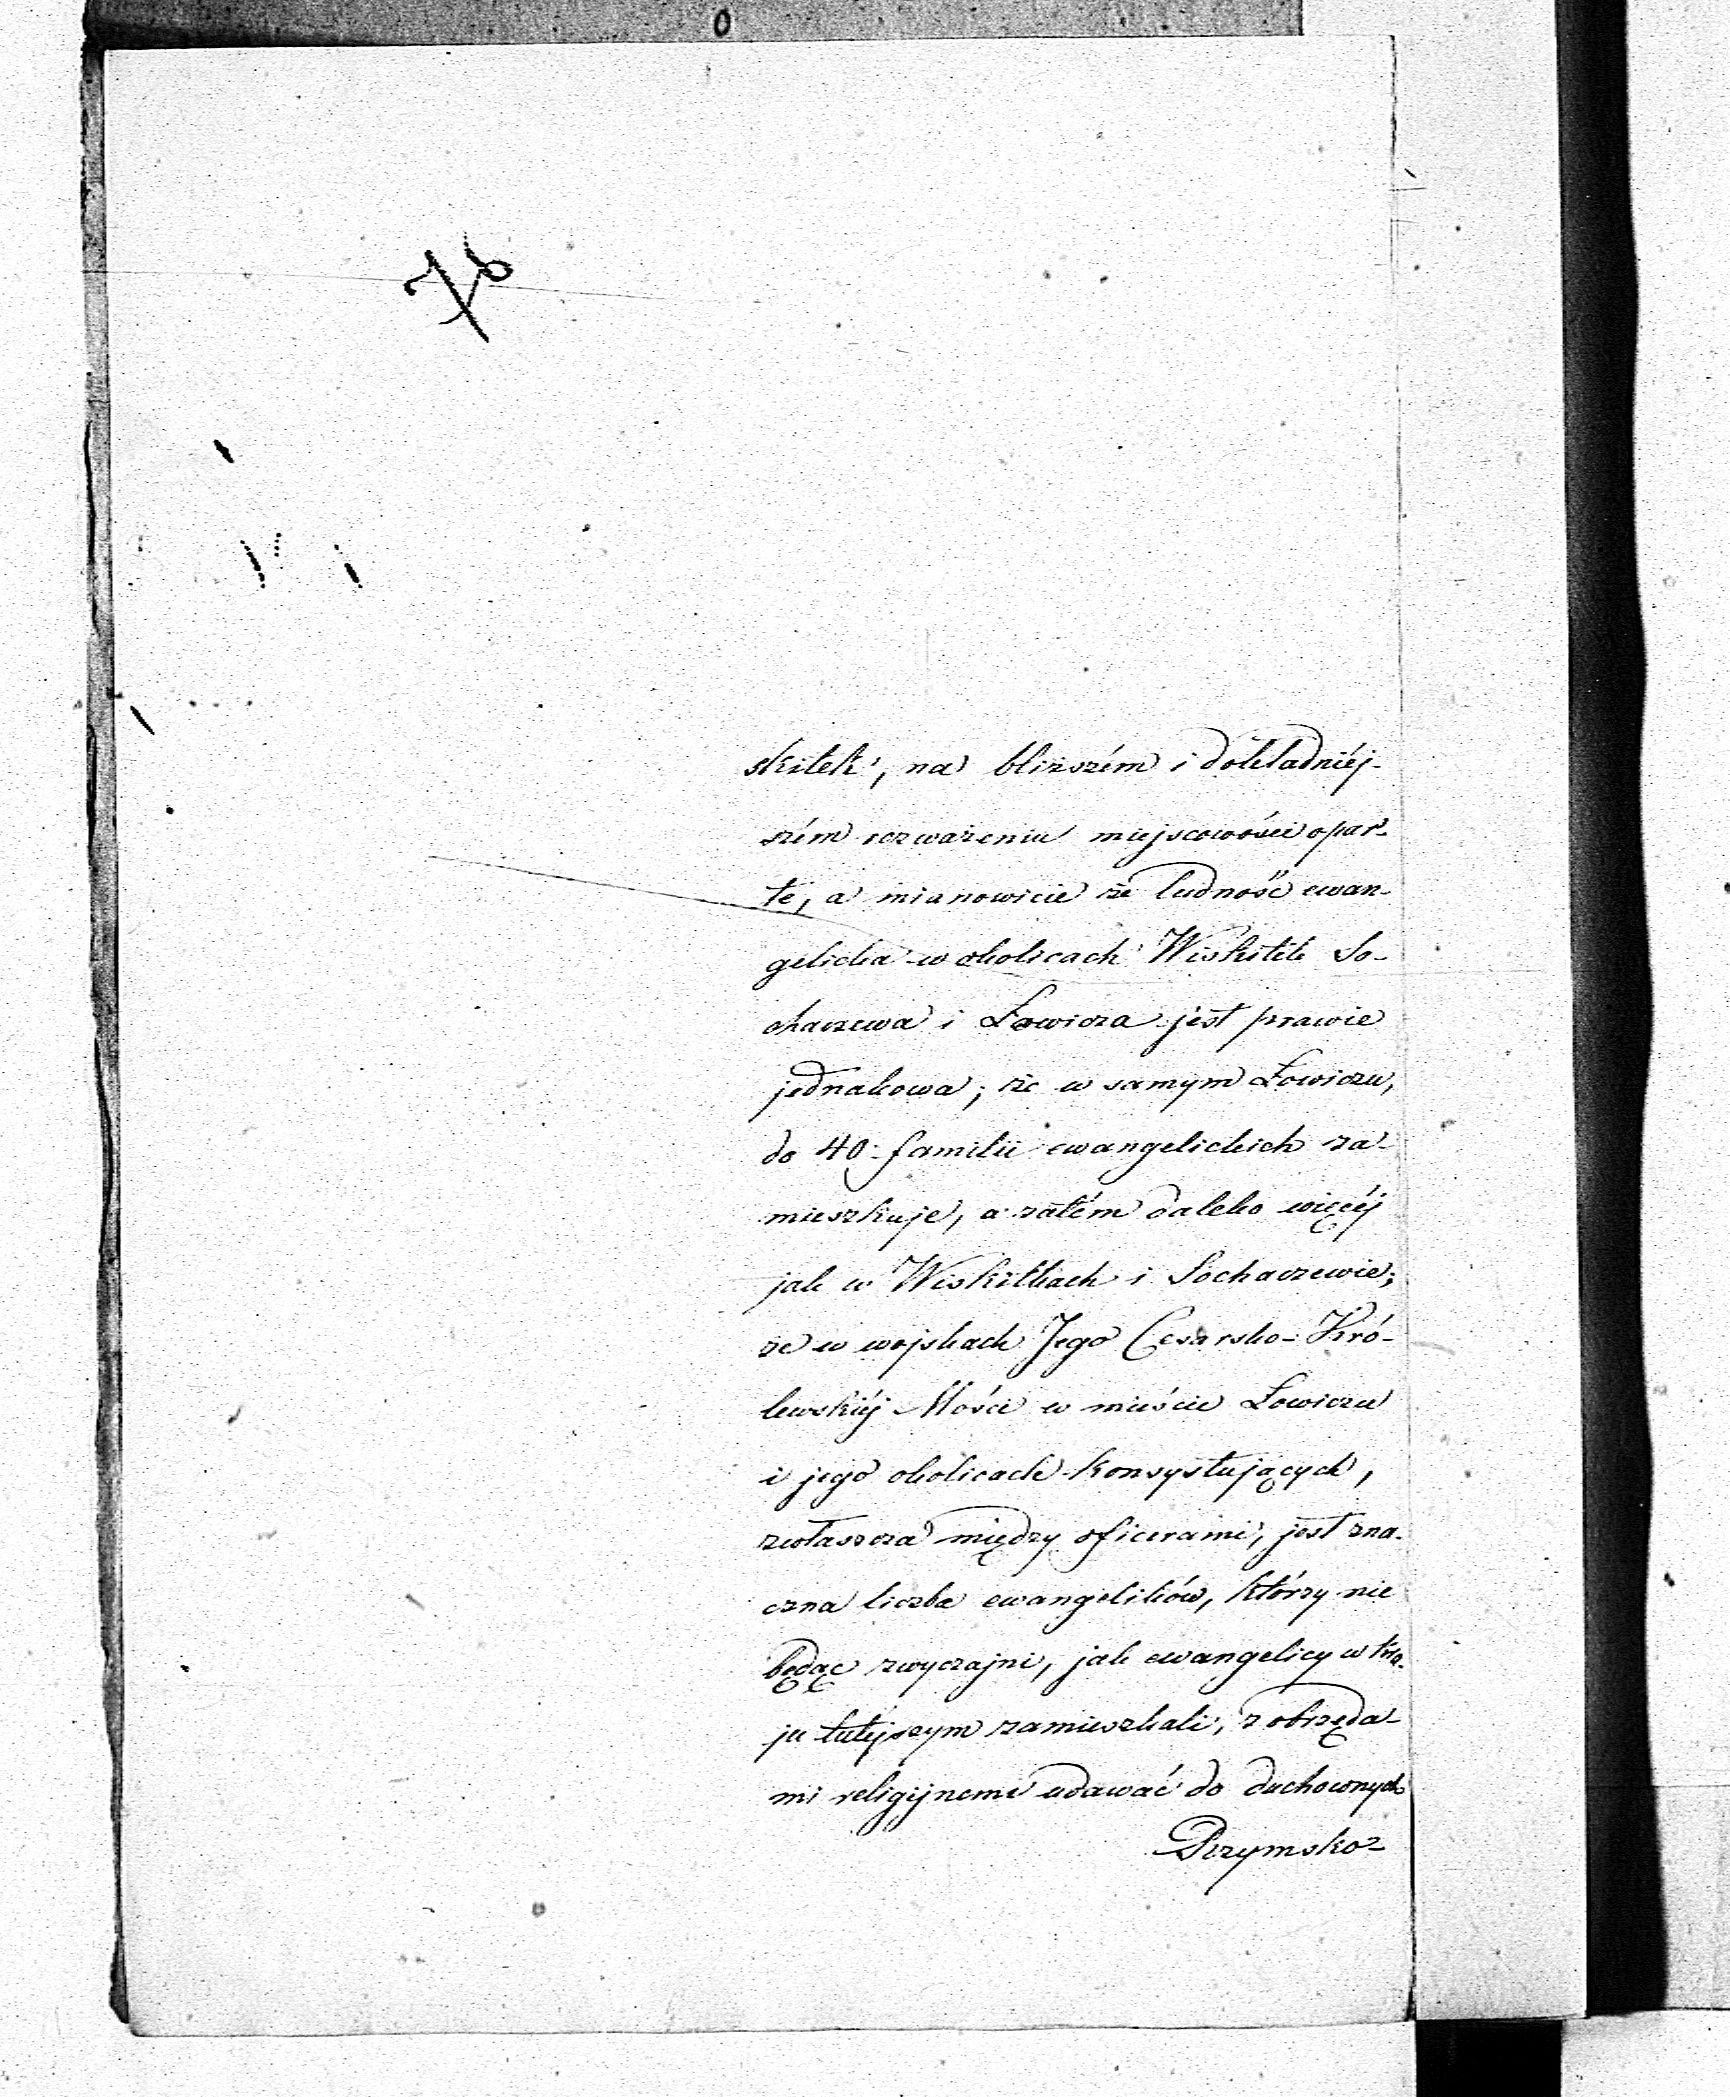 76
skitek, na bliższém i dokładniéj-
szém rozważeniu miejscowości opar-
te, a mianowicie że ludność ewan-
gelicka w okolicach Wiskitek So-
chaczewa i Łowicza jest prawie
jednakowa; że w samym Łowiczu,
do 40. familii ewangelickich za-
mieszkuje, a zatém daleko więcéj
jak w Wiskitkach i Sochaczewie;
że w wojskach Jego Cesarsko-Kró-
lewskiéj Mości w mieście Łowiczu
i jego okolicach konsystujących,
zwłaszcza między oficerami, jest zna-
czna liczba ewangelików, którzy nie
będąc zwyczajni, jak ewangelicy w kra-
ju tutejszym zamieszkali, z obrzęda-
mi religijnemi udawać do duchownych
Rzymsko-